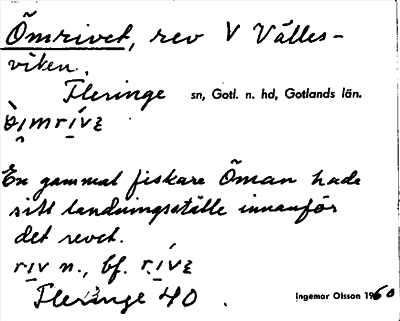 Ömrivet, rev V Välles-
viken.
Fleringe sn, Gotl. n. hd, Gotlands län.
En gammal fiskare Öman hade
sitt landningsställe innanför
det revet.
riv n., bf.
Fleringe 40.
Ingemar Olsson 1960